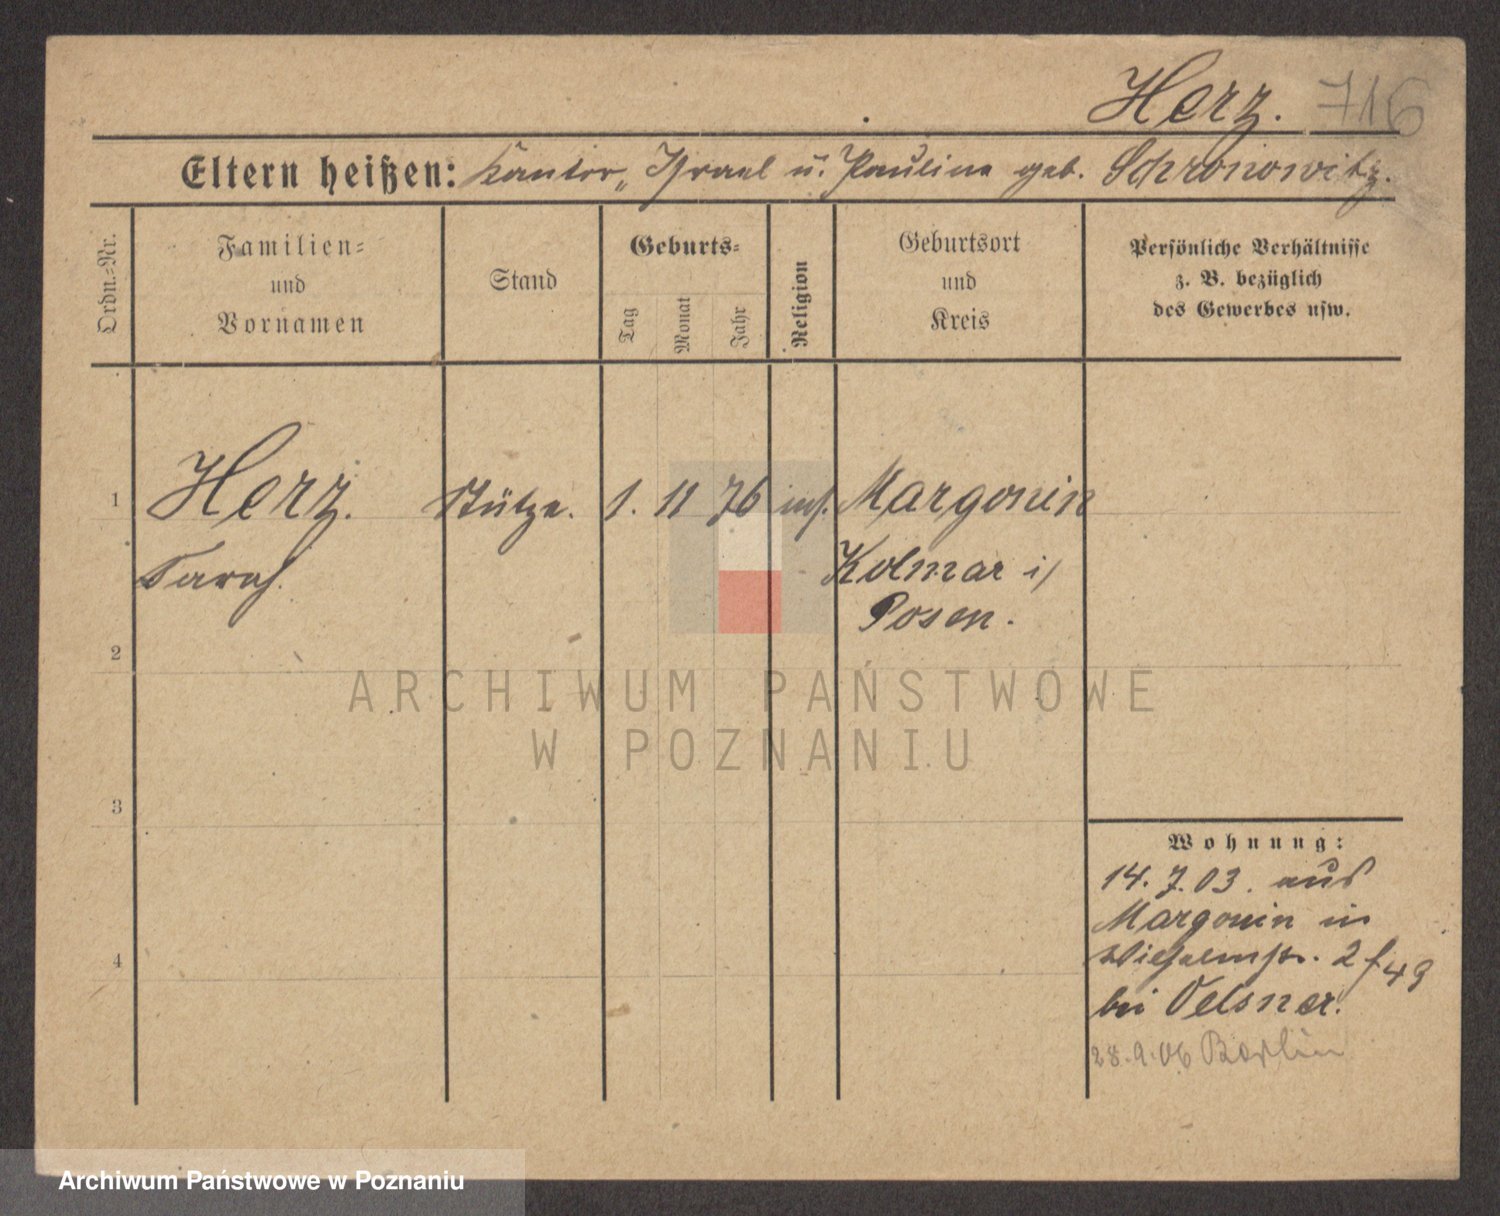 Herz. 716
Eltern heißen: Kantor „ Israel u. Pauline geb. Schronowitz.
Ordn.-Nr.
Familien-
und
Vornamen
Stand
Geburts-
Tag
Monat
Jahr
Religion
Geburtsort
und
Kreis
Persönliche Verhältnisse
z. B. bezüglich
des Gewerbes usw.
1 Herz. Stütze. 1. 11 76 mos. Margonin
Sarah. Kolmar i/
Posen.
2
3
4
Wohnung:
14. 7. 03. aus
Margonin in
Wilhelmstr. 2 f 49
bei Oelsner.
28. 9. 06 Berlin
ARCHIWUM PAŃSTWOWE
W POZNANIU
Archiwum Państwowe w Poznaniu